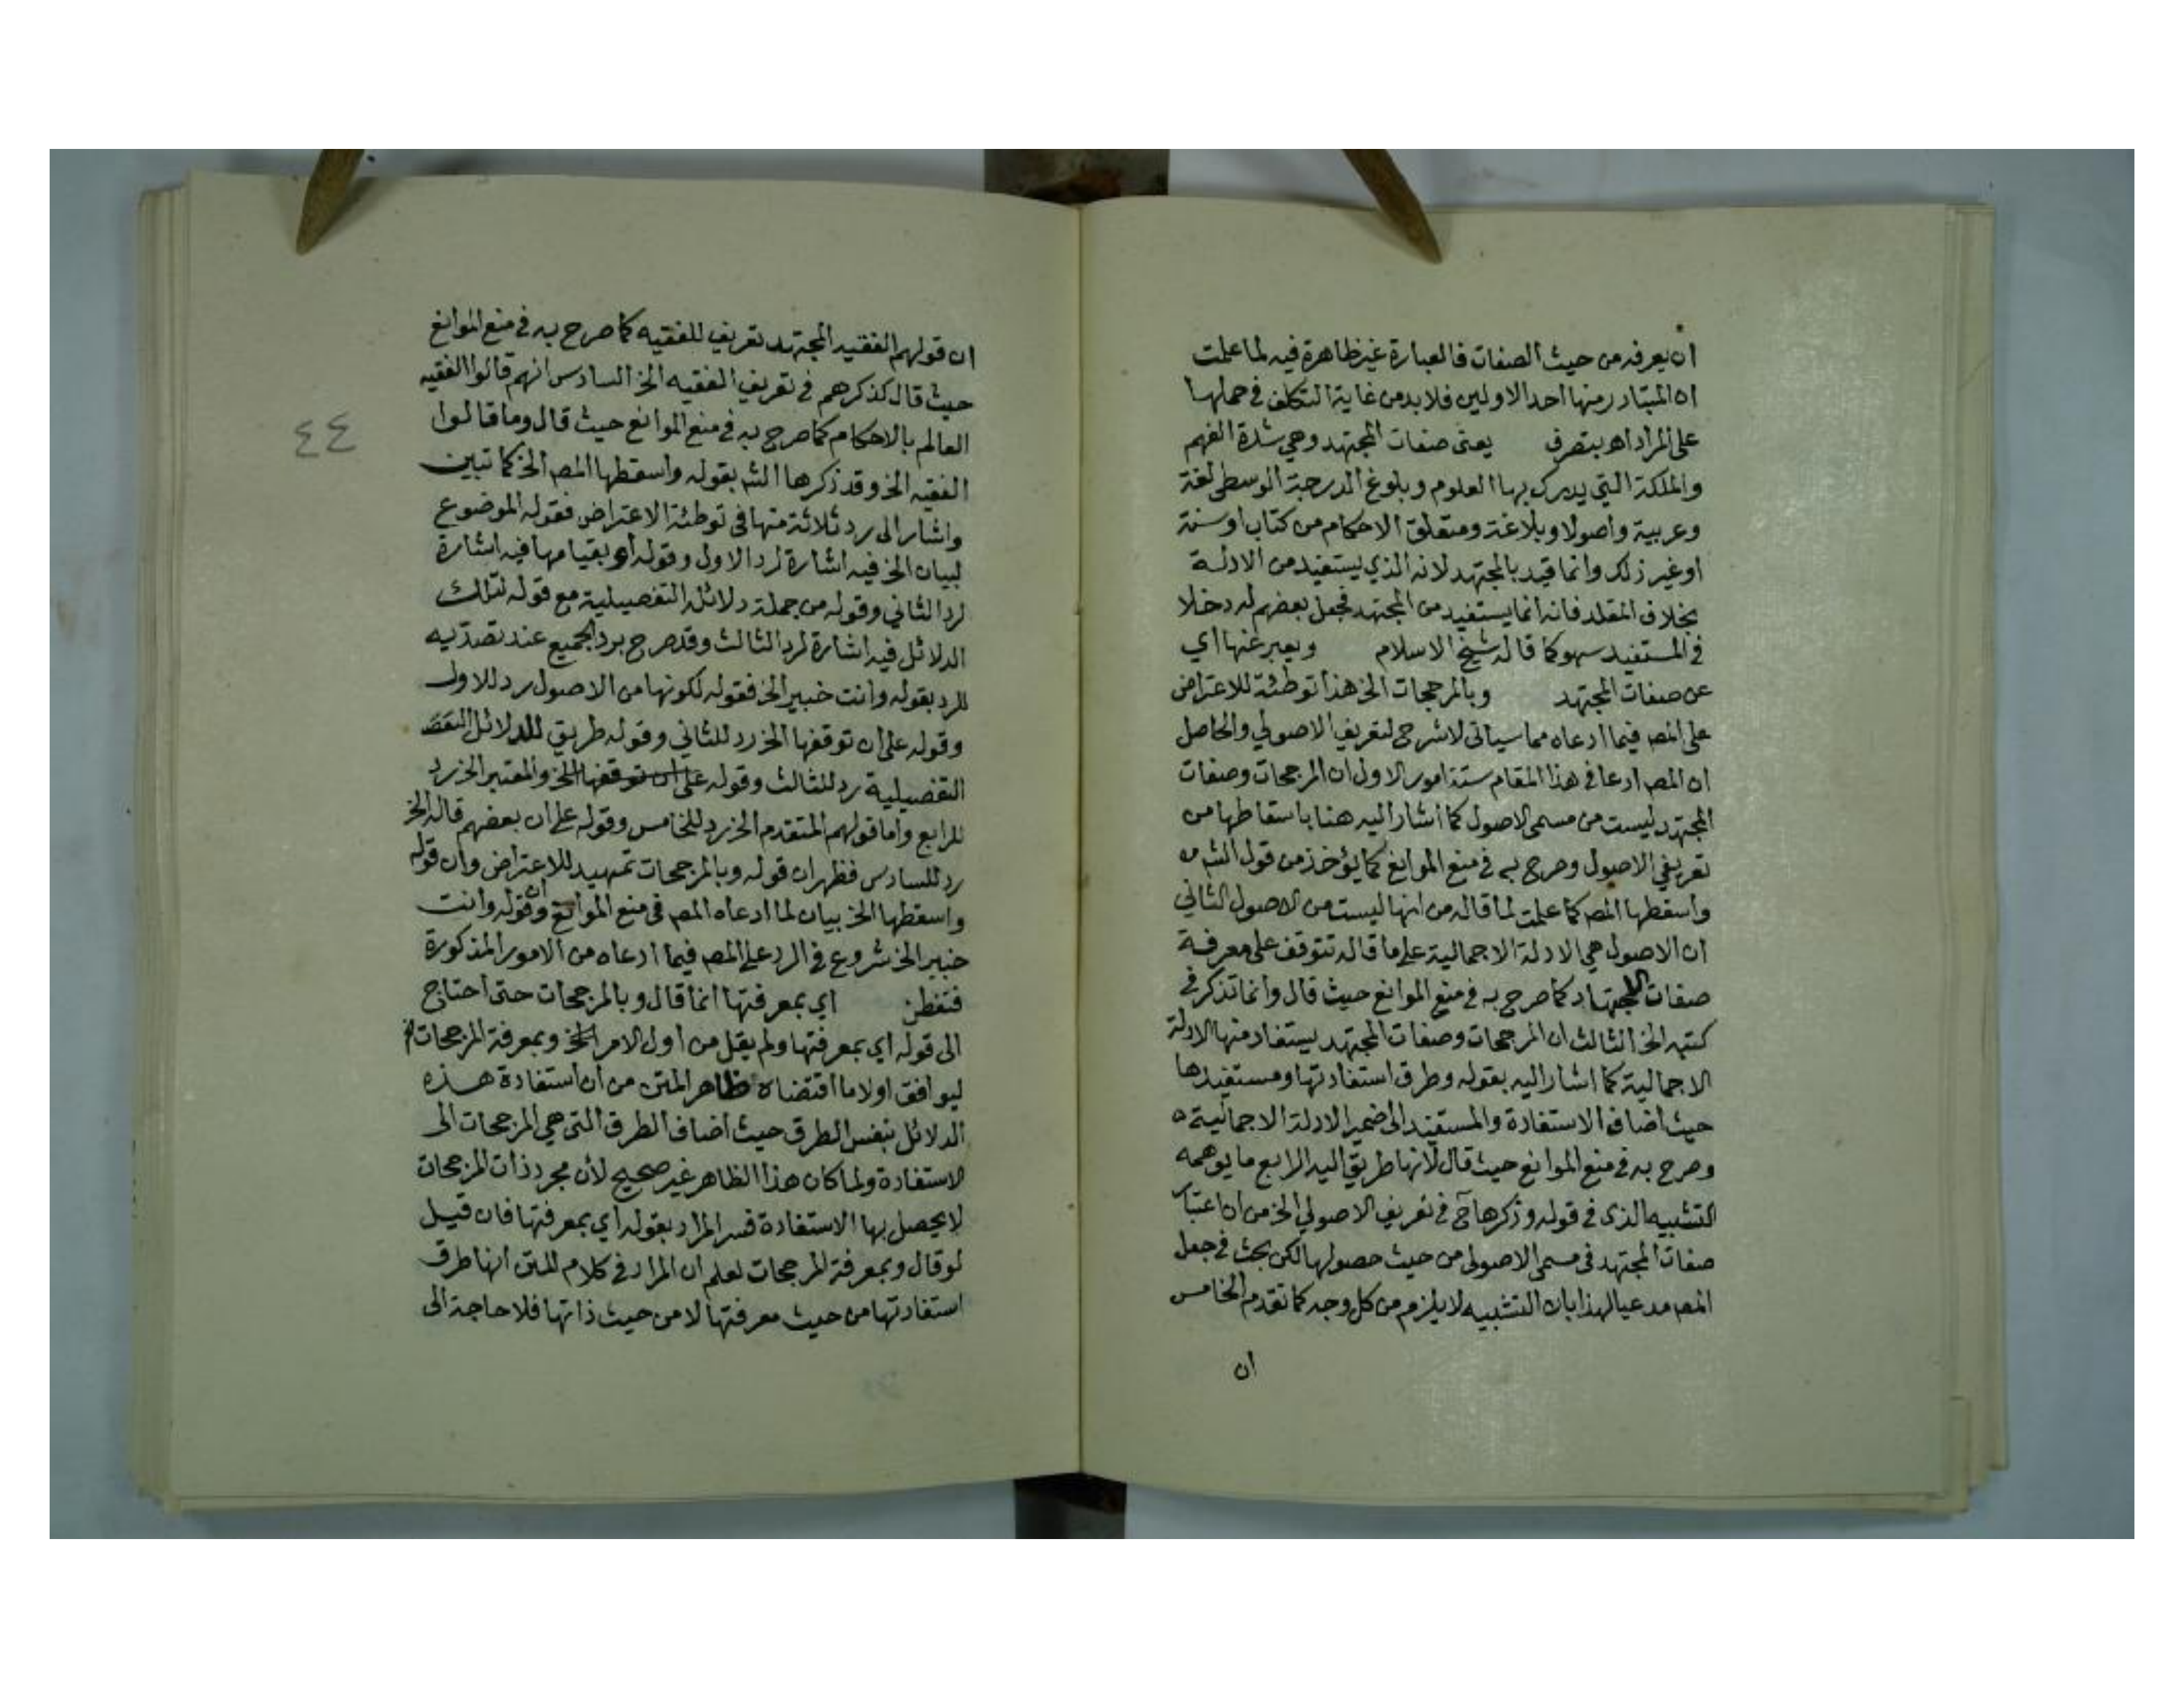 ان يعرفه من حيث الصفات فالعبارة غير ظاهرة فيه لما علمت
ان المتبادر منها احد الاولين فلا بد من غاية التكلف في حملها
على المراد اهـ بتصرف يعنى صفات المجتهد وهي شدة الفهم
والملكة التي يدرك بها العلوم وبلوغ الدرجة الوسطى لغة
وعربية واصولا وبلاغة ومتعلق الاحكام من كتاب او سنة
او غير ذلك وانما قيد بالمجتهد لانه الذي يستفيد من الادلة
بخلاف المقلد فانه انما يستفيد من المجتهد فجعل بعضهم له دخلا
في المستفيد سهو كما قاله شيخ الاسلام ويعبر عنها اي
عن صفات المجتهد وبالمرجحات الخ هذا توطئة للاعتراض
على المص فيما ادعاه مما سياتى لا شرح لتعريف الاصولي والحاصل
ان المص ادعا في هذا المقام ستة امور الاول ان المرجحات وصفات
المجتهد ليست من مسمى الاصول كما اشار اليه هنا باسقاطها من
تعريفي الاصول وصرح به في منع الموانع كما يؤخذ من قول الشم
واسقطها المص كما علمت لما قاله من انها ليست من الاصول الثاني
ان الاصول هي الادلة الاجمالية على ما قاله تتوقف على معرفة
صفات المجتهد كما صرح به في منع الموانع حيث قال وانما تذكر في
كتبه الخ الثالث ان المرجحات وصفات المجتهد يستفاد منها الادلة
الاجمالية كما اشار اليه بقوله وطرق استفادتها ومستفيدها
حيث اضاف الاستفادة والمستفيد الى ضمير الادلة الاجمالية
وصرح به في منع الموانع حيث قال لانها طريق اليه الرابع ما يوهمه
التشبيه الذى في قوله وذكرها ح في تعريف الاصولي الخ من ان اعتبار
صفات المجتهد فى مسمى الاصولى من حيث حصولها لكن بحث في جعل
المص مدعيا لهذا بان التشبيه لا يلزم من كل وجه كما تقدم الخامس
ان
٤٤
ان قولهم الفقيه المجتهد تعريف للفقيه كما صرح به في منع الموانع
حيث قال كذكرهم في تعريف الفقيه الخ السادس انهم قالوا الفقيه
العالم بالاحكام كما صرح به في منع الموانع حيث قال وما قالوا
الفقيه الخ وقد ذكرها الشم بقوله واسقطها المص الخ كما تبين
واشار الى رد ثلاثة منها فى توطئة الاعتراض فقوله الموضوع
لبيان الخ فيه اشارة لرد الاول وقوله او بقيامها فيه اشارة
لرد الثاني وقوله من جملة دلائله التفصيلية مع قوله لتلك
الدلائل فيه اشارة لرد الثالث وقد صرح برد الجميع عند تصديه
للرد بقوله وانت خبير الخ فقوله لكونها من الاصول رد للاول
وقوله على ان توقفها الخ رد للثاني وقوله طريق للدلائل التفص
التفصيلية رد للثالث وقوله على ان توقفها الخ والمعتبر الخ رد
للرابع واما قولهم المتقدم الخ رد للخامس وقوله على ان بعضهم قاله الخ
رد للسادس فظهر ان قوله وبالمرجحات تمهيد للاعتراض وان قوله
واسقطها الخ بيان لما ادعاه المص فى منع الموانع وان قوله وانت
خبير الخ شروع في الرد على المص فيما ادعاه من الامور المذكورة
فتفطن اي بمعرفتها انما قال وبالمرجحات حتى احتاج
الى قوله اي بمعرفتها ولم يقل من اول الامر الخ وبمعرفة المرجحات
ليوافق اولا ما اقتضاه ظاهر المتن من ان استفادة هذه
الدلائل بنفس الطرق حيث اضاف الطرق التى هي المرجحات الى
الاستفادة ولما كان هذا الظاهر غير صحيح لأن مجرد ذات المرجحات
لا يحصل بها الاستفادة فسر المراد بقوله اي بمعرفتها فان قيل
لو قال وبمعرفة المرجحات لعلم ان المراد في كلام المتن انها طرق
استفادتها من حيث معرفتها لا من حيث ذاتها فلا حاجة الى